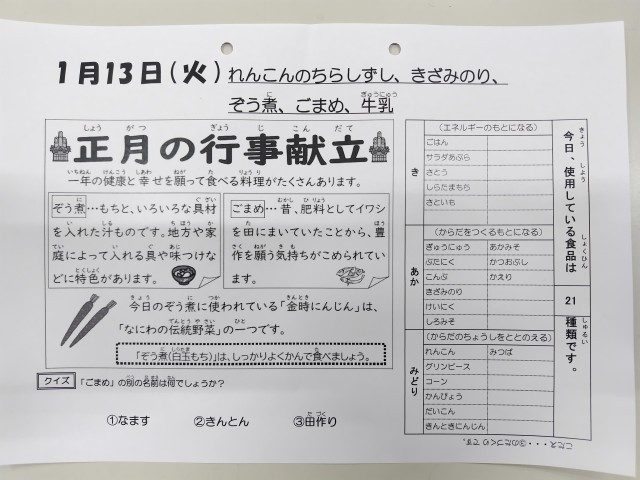 1月13日(火)れんこんのちらしずし、きざみのり、
ぞう煮、ごまめ、牛乳
正月の行事献立
一年の健康と幸せを願って食べる料理がたくさんあります。
ぞう煮…もちと、いろいろな具材
を入れた汁ものです。地方や家
庭によって入れる具や味つけな
どに特色があります。
ごまめ…昔、肥料としてイワシ
を田にまいていたことから、豊
作を願う気持ちがこめられてい
ます。
今日のぞう煮に使われている「金時にんじん」は、
「なにわの伝統野菜」の一つです。
「ぞう煮(白玉もち)」は、しっかりよくかんで食べましょう。
クイズ 「ごまめ」の別の名前は何でしょうか?
①なます ②きんとん ③田作り
今日、使用している食品は
21
種類です。
き
(エネルギーのもとになる)
ごはん
サラダあぶら
さとう
しらたまもち
さといも
あか
(からだをつくるもとになる)
ぎゅうにゅう あかみそ
ぶたにく かつおぶし
こんぶ かえり
きざみのり
けいにく
しろみそ
みどり
(からだのちょうしをととのえる)
れんこん みつば
グリンピース
コーン
かんぴょう
だいこん
きんときにんじん
こたえ・・・③のたづくり です。